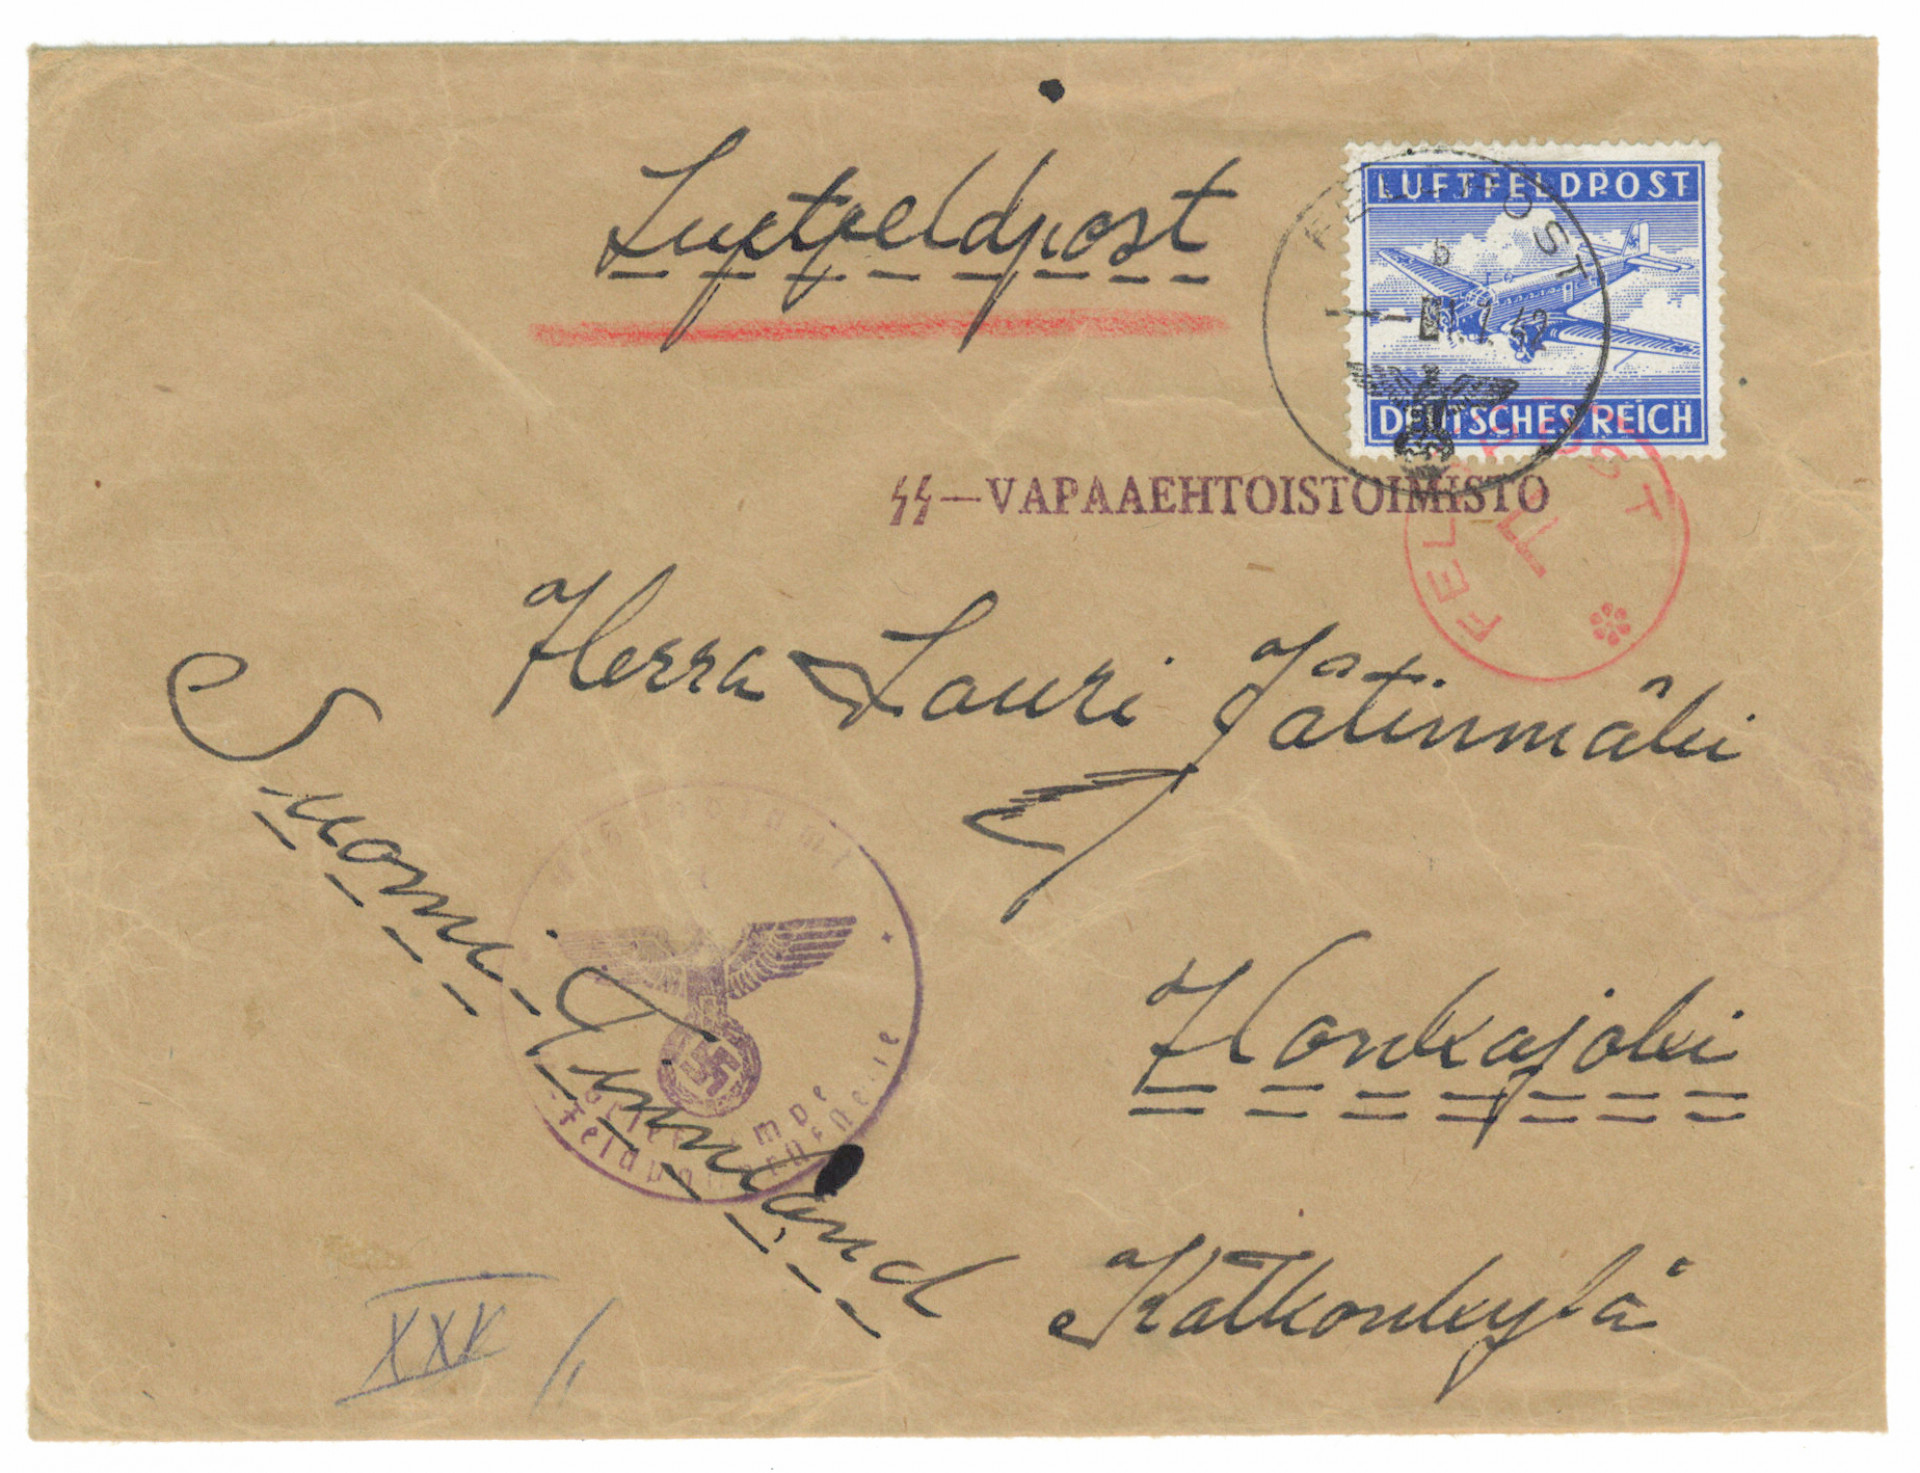 Luftfeldpost
LUFTFELDPOST
DEUTSCHES REICH
FELDPOST
b
42
ᛋᛋ—VAPAAEHTOISTOIMISTO
FELDPOST
Herra Lauri Jätinmäki
Honkajoki
Katkonkylä
Suomi, Finnland
XXX